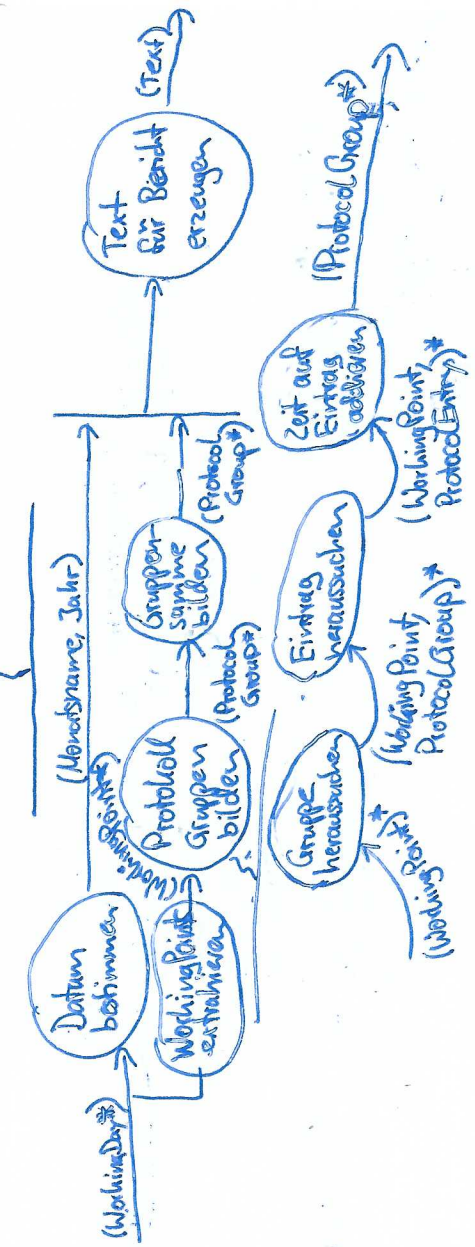 (WorkingDay*)
Datum
bestimmen
(Monatsname, Jahr)
WorkingPoint
extrahieren
(WorkingPoint*)
Protokoll
Gruppen
bilden
(Protocol
Group*)
Gruppen-
summe
bilden
(Protocol
Group*)
Text
für Bericht
erzeugen
(Text)
(WorkingPoint)*
Gruppe
heraussuchen
(WorkingPoint,
ProtocolGroup)*
Eintrag
heraussuchen
(WorkingPoint,
ProtocolEntry)*
Zeit auf
Eintrag
addieren
(ProtocolGroup*)